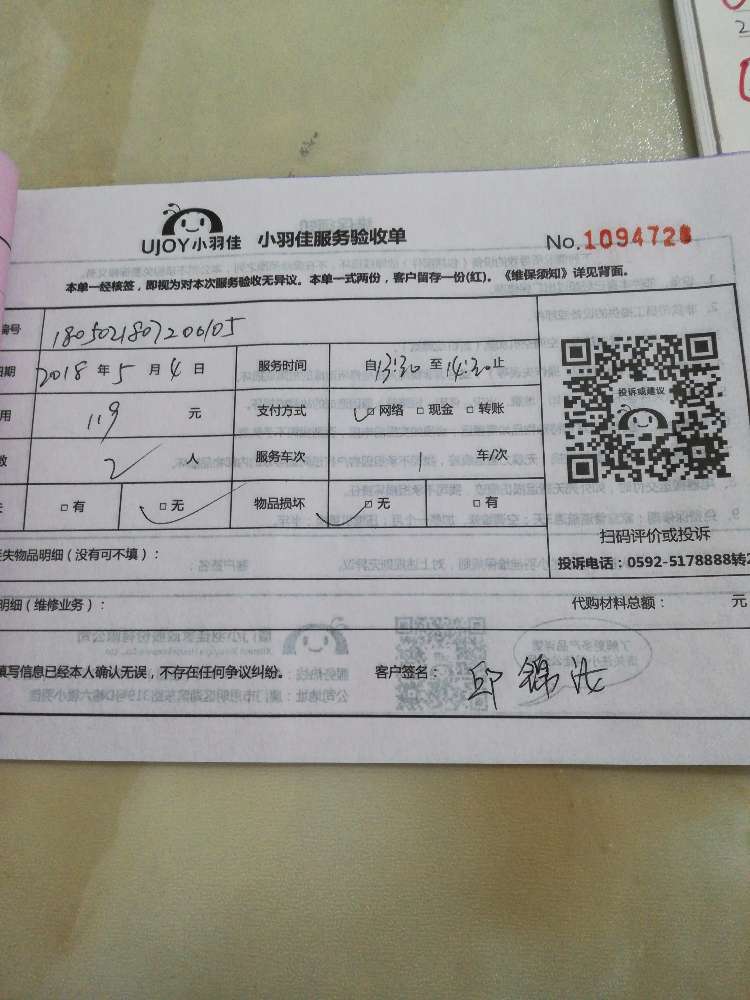 UJOY小羽佳 小羽佳服务验收单 No.1094728
本单一经核签，即视为对本次服务验收无异议。本单一式两份，客户留存一份(红)。《维保须知》详见背面。
编号 1805021807200105
日期 2018年5月4日 服务时间 自13:30至14:30止
用 119元 支付方式 网络 现金 转账
数 2人 服务车次 1车/次
失 有 无 物品损坏 无 有
投诉或建议
扫码评价或投诉
投诉电话：0592-5178888转2
丢失物品明细（没有可不填）：
明细（维修业务）： 代购材料总额： 元
填写信息已经本人确认无误，不存在任何争议纠纷。 客户签名： 邱锦